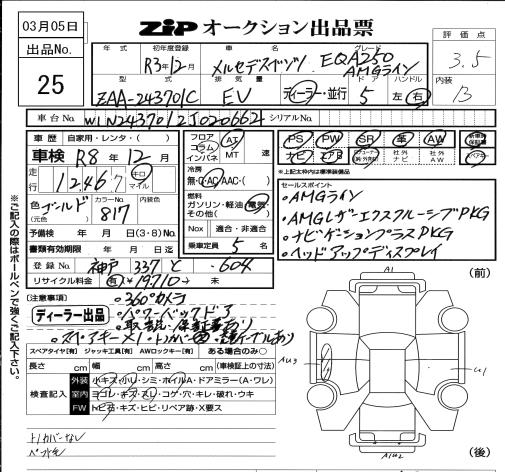 03月05日
ZIP オークション出品票
出品No.
25
年式 初年度登録 車名 グレード
R3年12月 メルセデスベンツ EQA250
AMGライン
評価点
3.5
内装
B
型式 排気量 ドア ハンドル
ZAA-243701C EV ディーラー・並行 5 左・右
車台No. W1N2437012J020662 シリアルNo.
車歴 自家用・レンタ・( )
車検 R8年12月
走行 12467 キロ マイル
色 ゴールド カラーNo. 817 内装色
(元色)
予備検 年 月 日(3・6・8)Mo.
書類有効期限 年 月 日迄
登録No. 神戸 337 と ・604
リサイクル料金 有 ¥19710
フロア
コラム
インパネ
AT
MT 速
冷房
無・C・AC/AAC・( )
燃料
ガソリン・軽油・電気
その他( )
Nox 適合・非適合
乗車定員 5 名
PS PW SR 革 AW 新車時保証書
ナビ エアB 社外ナビ 社外AW
※上記太枠内は標準装備品
セールスポイント
・AMGライン
・AMGレザーエクスクルーシブPKG
・ナビゲーションプラスPKG
・ヘッドアップディスプレイ
(注意事項)
ディーラー出品
・360°カメラ
・パワーバックドア
・取説・保証書あり
・スペアキー×1
スペアタイヤ[有] ジャッキ工具[有] AWロックキー[有] ある場合のみ○
長さ cm 幅 cm 高さ cm (車検証上の寸法)
検査記入
外装 小キズ・小U・シミ・ホイルA・ドアミラー(A・ワレ)
室内 ヨゴレ・キズ・スレ・コゲ・穴・キレ・破れ・ウキ
FW トビ石・キズ・ヒビ・リペア跡・X要ス
トノカバーなし
※ご記入の際はボールペンで強くご記入下さい。
(前)
A1
AU3
U1
AU2
(後)